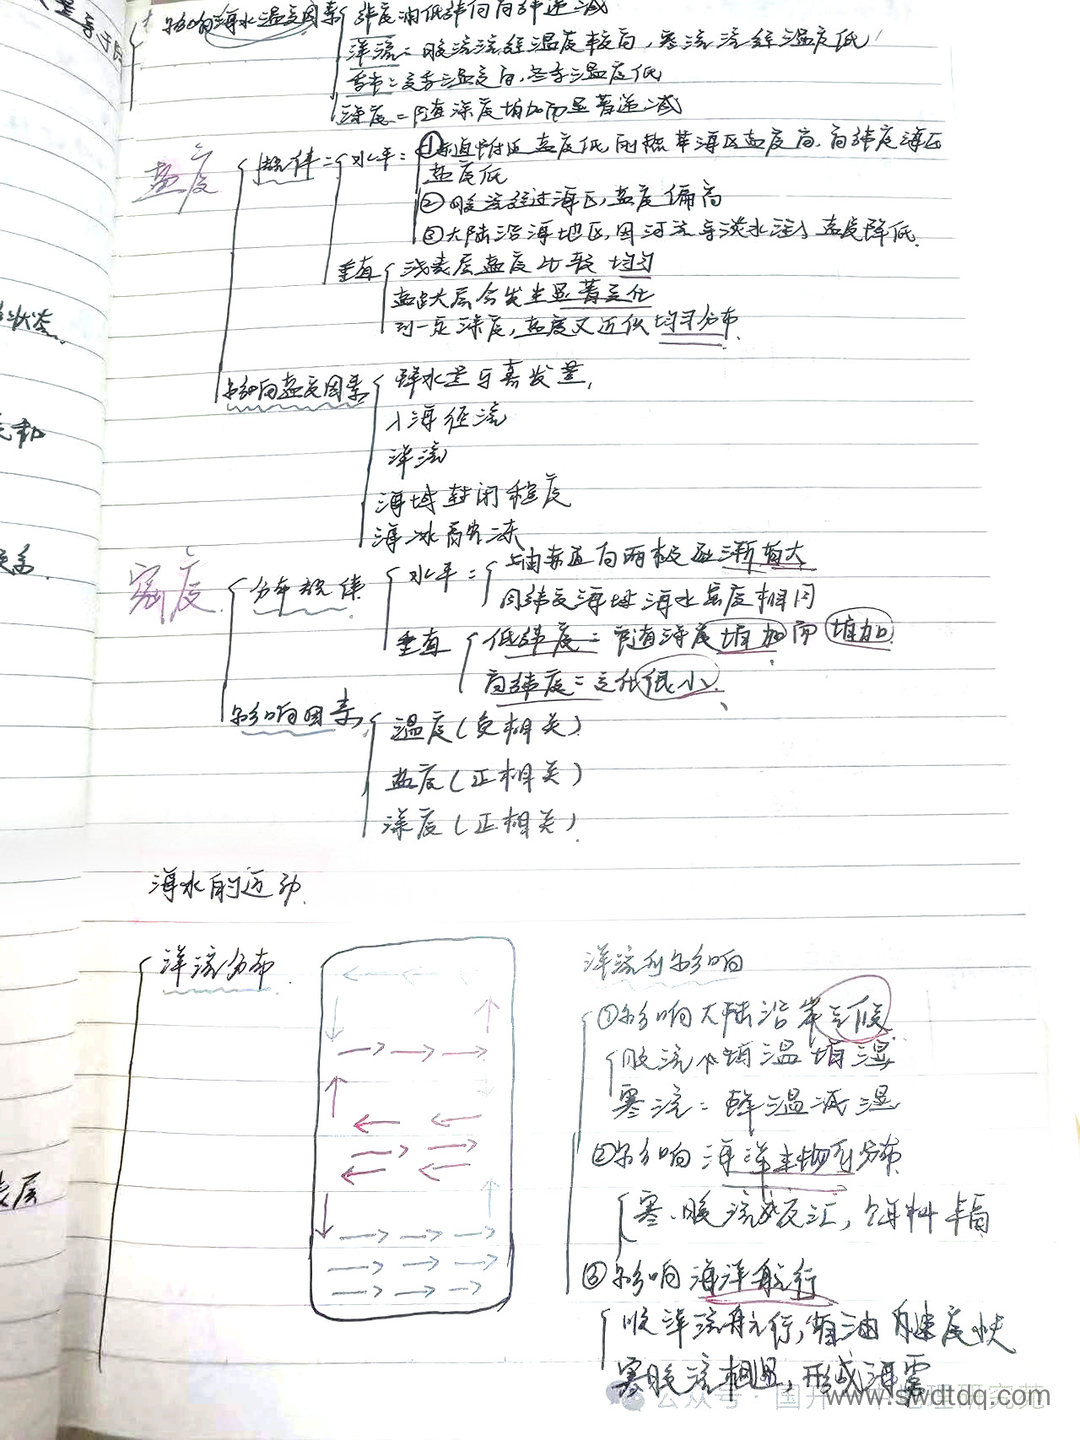 影响海水温度因素 纬度:由低纬向高纬递减
洋流:暖流流经温度较高,寒流流经温度低
季节:夏季温度高,冬季温度低
深度:随深度增加而显著递减
盐度
规律:
水平:
①赤道附近盐度低 副热带海区盐度高,高纬度海区
盐度低
②暖流经过海区,盐度偏高
③大陆沿海地区,因河流等淡水注入盐度降低.
垂直
浅表层盐度比较均匀
盐跃层会发生显著变化
到一定深度,盐度又近似均匀分布
影响盐度因素
降水量与蒸发量,
入海径流
洋流
海域封闭程度
海冰的冻
密度
分布规律
水平:
由赤道向两极逐渐增大
同纬度海域海水密度相同
垂直
低纬度:随深度增加而增加.
高纬度:变化很小.
影响因素
温度(负相关)
盐度(正相关)
深度(正相关)
海水的运动.
洋流分布
洋流的影响
①影响大陆沿岸气候
暖流:增温增湿
寒流:降温减湿
②影响海洋生物的分布
寒、暖流交汇,饵料丰富
③影响海洋航行
顺洋流航行,省油 速度快
寒暖流相遇,形成海雾
状态.
和
关系.
表层
公众号·国开
www.swdtdq.com